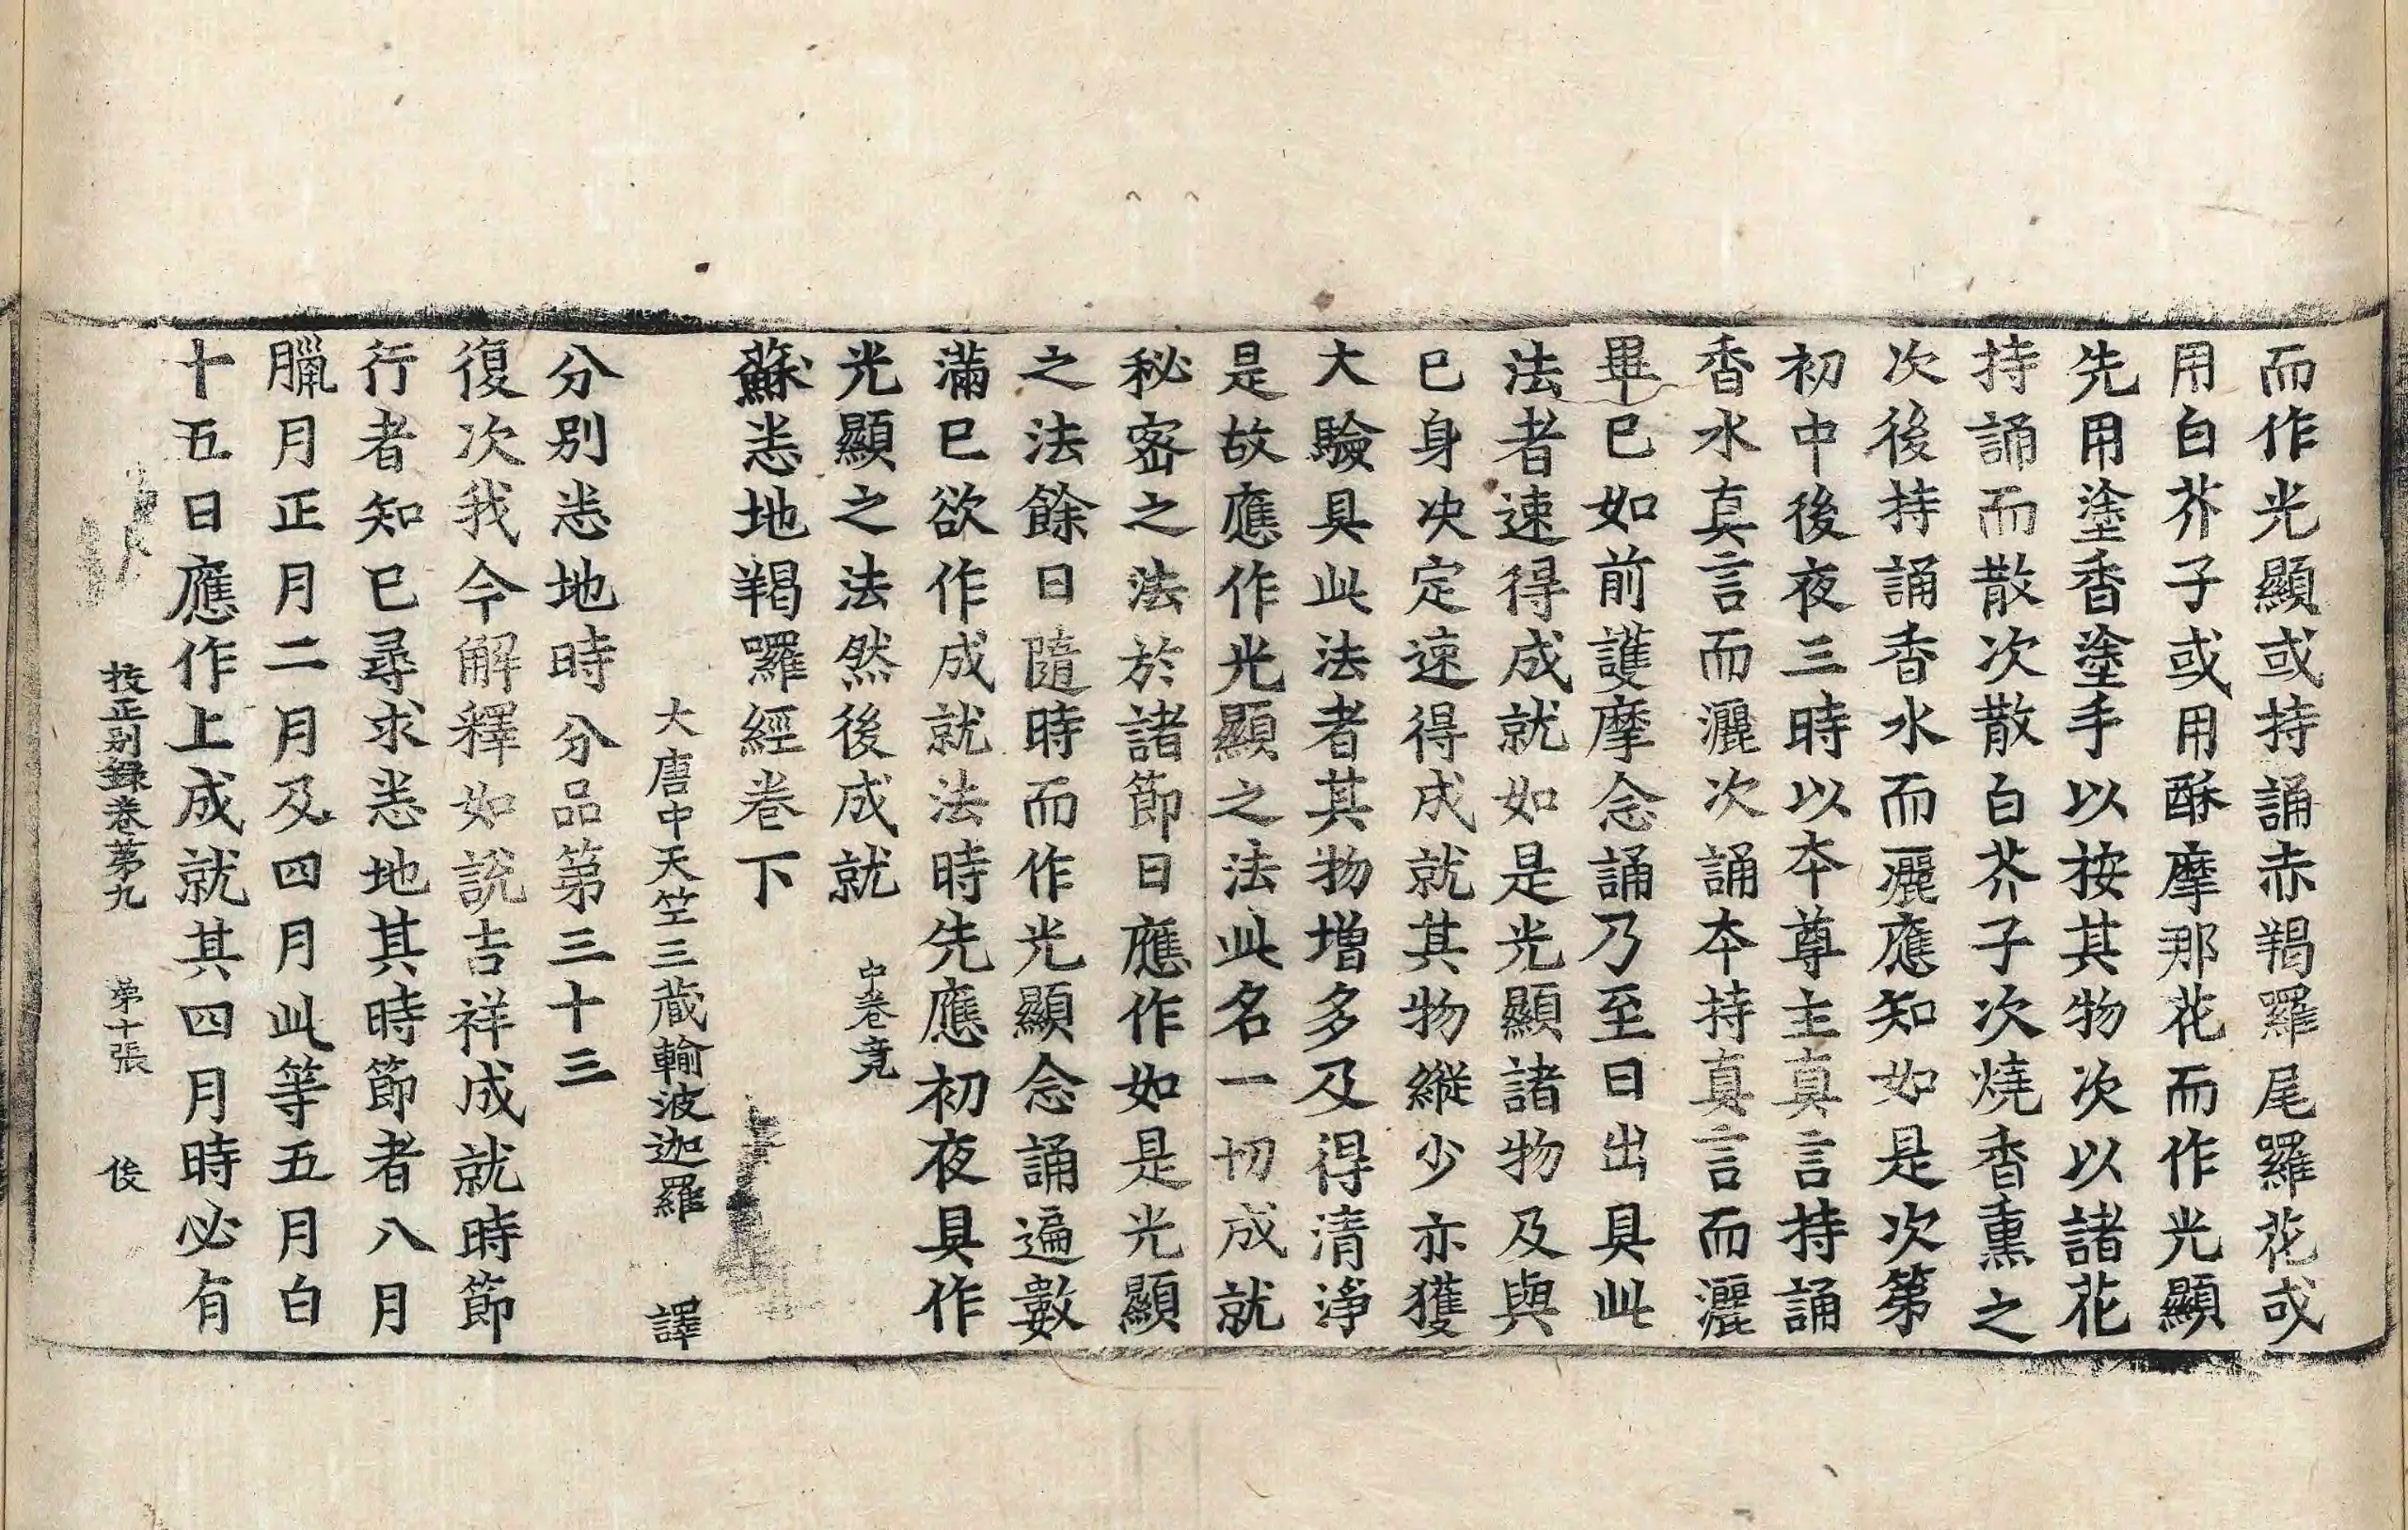 而作光顯或持誦赤羯羅尾羅花或
用白芥子或用酥摩那花而作光顯
先用塗香塗手以按其物次以諸花
持誦而散次散白芥子次燒香熏之
次後持誦香水而灑應知如是次第
初中後夜三時以本尊主真言持誦
香水真言而灑次誦本持真言而灑
畢已如前護摩念誦乃至日出具此
法者速得成就如是光顯諸物及與
已身决定速得成就其物縱少亦獲
大驗具此法者其物增多及得清淨
是故應作光顯之法此名一切成就
秘密之法於諸節日應作如是光顯
之法餘日隨時而作光顯念誦遍數
滿已欲作成就法時先應初夜具作
光顯之法然後成就 中卷竟
蘇悉地羯囉經卷下
大唐中天竺三藏輸波迦羅 譯
分別悉地時分品第三十三
復次我今解釋如說吉祥成就時節
行者知已尋求悉地其時節者八月
臘月正月二月及四月此等五月白
十五日應作上成就其四月時必有
挍正别録卷第九 第十張 俊